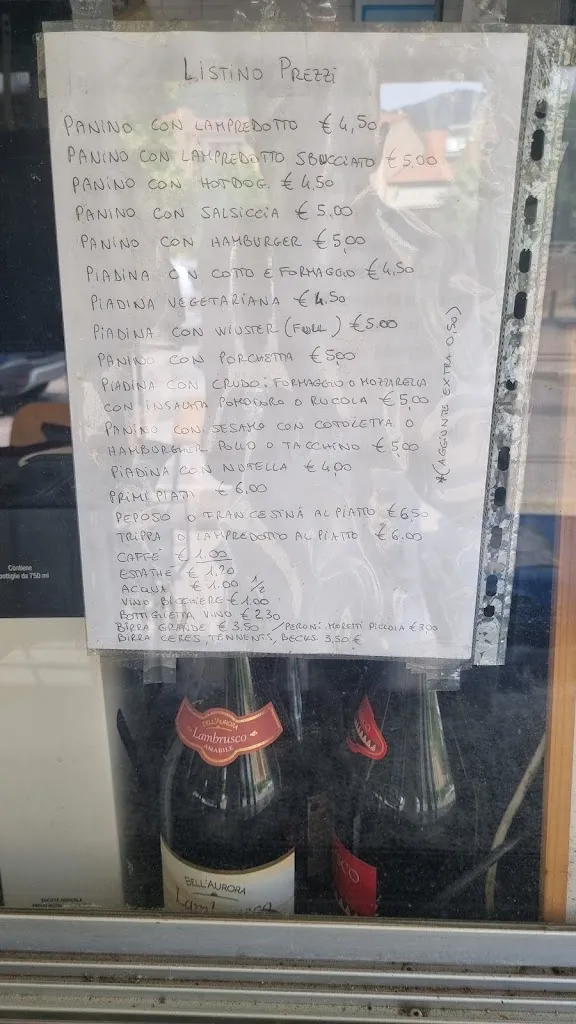 LISTINO PREZZI
PANINO CON LAMPREDOTTO € 4,50
PANINO CON LAMPREDOTTO SBUCCIATO € 5,00
PANINO CON HOTDOG. € 4,50
PANINO CON SALSICCIA € 5,00
PANINO CON HAMBURGER € 5,00
PIADINA CON COTTO E FORMAGGIO € 4,50
PIADINA VEGETARIANA € 4.50
PIADINA CON WIUSTER (FULL) € 5.00
PANINO CON PORCHETTA €5,00
PIADINA CON CRUDO: FORMAGGIO O MOZZARELLA
CON INSALATA POMODORO O RUCOLA € 5,00
PANINO CON SESAMO CON COTOLETTA O
HAMBURGHER POLLO O TACCHINO € 5,00
PIADINA CON NUTELLA € 4,00
PRIMI PIATTI € 6,00
PEPOSO O FRANCESINA AL PIATTO € 6,50
TRIPPA O LAMPREDOTTO AL PIATTO € 6.00
CAFFÈ € 1.00
ESTATHÈ € 1,20
ACQUA € 1.00 1/2
VINO BICCHIERE € 1.00
BOTTIGLIETTA VINO € 2,30
BIRRA GRANDE € 3,50 / PERONI MORETTI PICCOLA € 3,00
BIRRA CERES, TENNENTS, BECKS 3,50 €
*(AGGIUNTE EXTRA 0,50)
Contiene
bottiglie da 750 ml
DELL'AURORA
Lambrusco
AMABILE
DELL'AURORA
Lambrusco
SCO
SOCIETÀ AGRICOLA